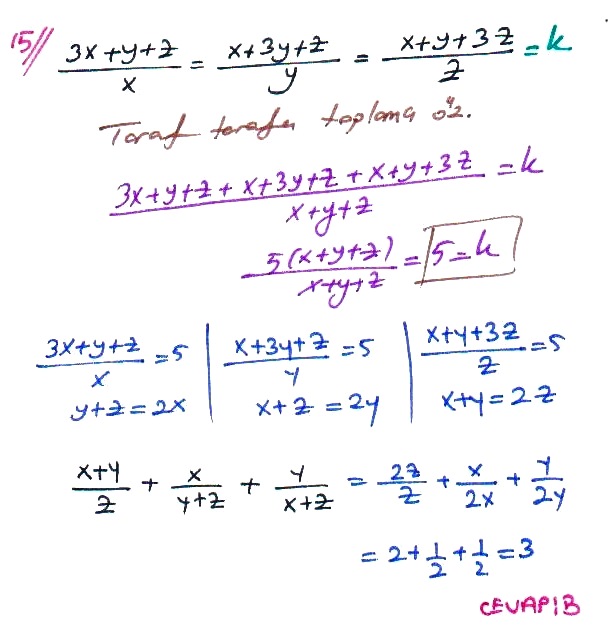 15// (3x+y+z)/x = (x+3y+z)/y = (x+y+3z)/z = k
Taraf tarafa toplama öz.
(3x+y+z+x+3y+z+x+y+3z)/(x+y+z) = k
5(x+y+z)/(x+y+z) = 5=k
(3x+y+z)/x = 5 | (x+3y+z)/y = 5 | (x+y+3z)/z = 5
y+z=2x | x+z=2y | x+y=2z
(x+y)/z + x/(y+z) + y/(x+z) = 2z/z + x/2x + y/2y
= 2+1/2+1/2=3
CEVAP:B